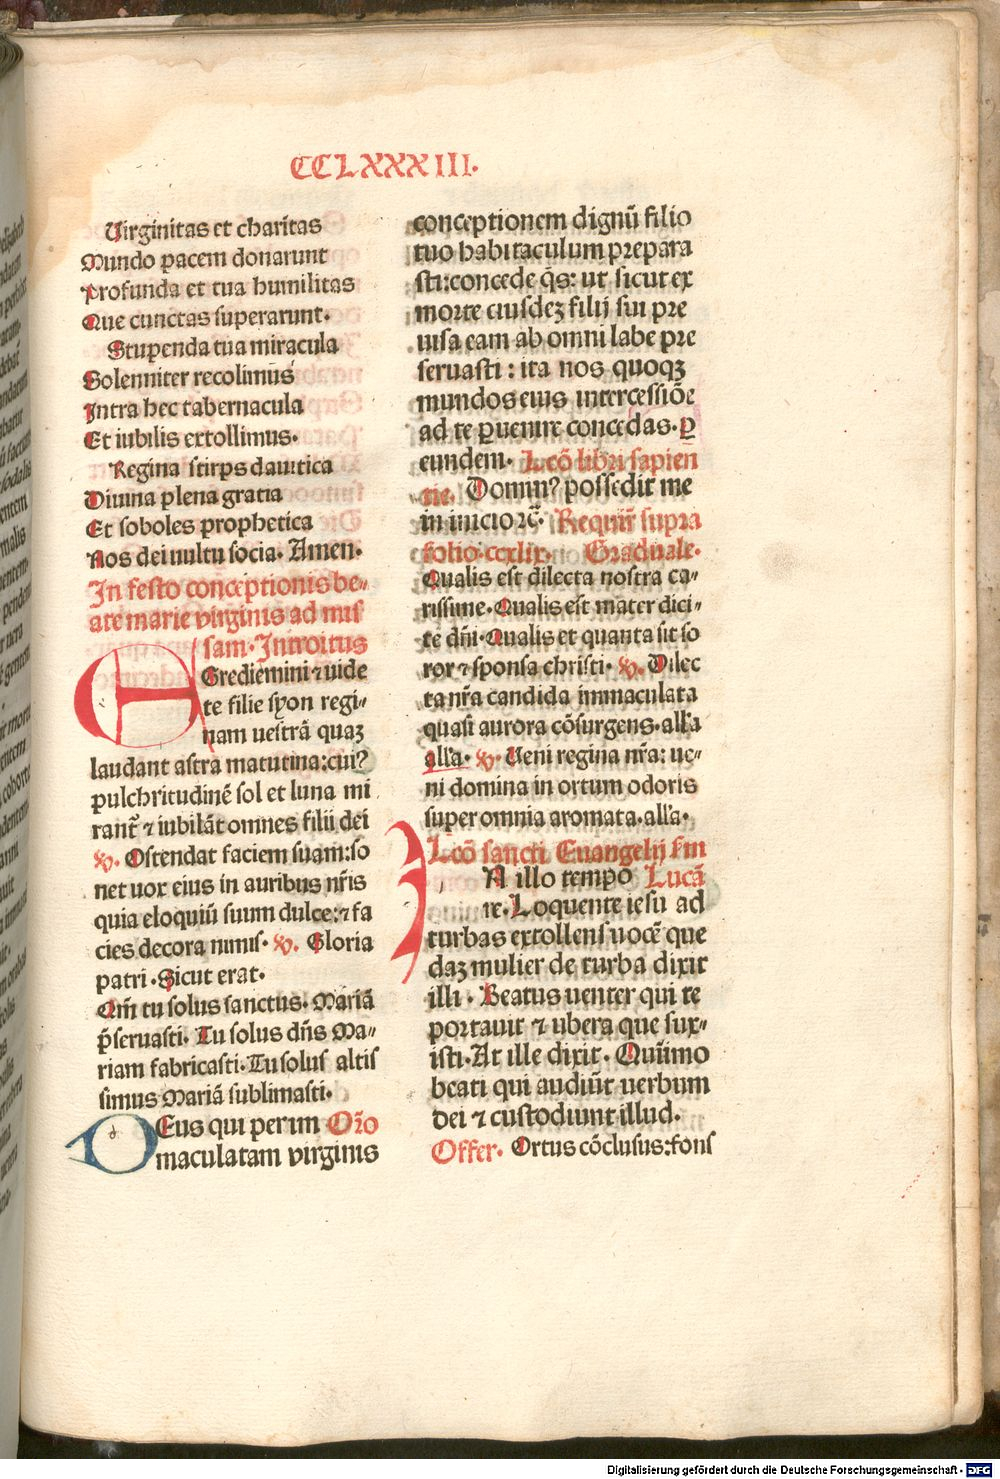 CCLXXXIII.
Uirginitas et charitas
Mundo pacem donarunt
Profunda et tua humilitas
Que cunctas superarunt.
Stupenda tua miracula
Solenniter recolimus
Intra hec tabernacula
Et iubilis extollimus.
Regina stirps dauitica
Diuina plena gratia
Et soboles prophetica
Nos dei uultu socia. Amen.
In festo conceptionis be-
ate marie virginis ad mis
sam. Introitus
EGrediemini ⁊ uide
te filie syon regi-
nam uestrā quaꝫ
laudant astra matutina:cuiꝰ
pulchritudinē sol et luna mi
rant᷑ ⁊ iubilāt omnes filii dei
℣. Ostendat faciem suam:so
net uox eius in auribus nr̄is
quia eloquiū suum dulce:⁊ fa
cies decora nimis. ℣. Gloria
patri. Sicut erat.
Qm̄ tu solus sanctus. Mariā
p̄seruasti. Tu solus dn̄s Ma-
riam fabricasti. Tu solus altis
simus Mariā sublimasti.
DEus qui per im Orō
maculatam virginis
conceptionem dignū filio
tuo habitaculum prepara
sti:concede q̄s: ut sicut ex
morte eiusdeꝫ filij sui pre
uisa eam ab omni labe pre
seruasti : ita nos quoqꝫ
mundos eius intercessiōe
ad te ꝑuenire concedas. ꝑ
eundem. Lcō libri sapien
tie. Dominꝰ possedit me
in inicio ⁊c̄. Requir̄ supra
folio.ccxlix. Graduale.
Qualis est dilecta nostra ca-
rissime. Qualis est mater dici-
te dn̄i. Qualis et quanta sit so
ror ⁊ sponsa christi. ℣. Dilec
ta nr̄a candida immaculata
quasi aurora cōsurgens. all'a
all'a. ℣. Ueni regina nr̄a: ue-
ni domina in ortum odoris
super omnia aromata. all'a.
Lcō sancti Euangelij sm̄
IN illo tempo Lucā
re. Loquente iesu ad
turbas extollens uocē que
daꝫ mulier de turba dixit
illi . Beatus uenter qui te
portauit ⁊ ubera que sux-
isti. At ille dixit . Quīimo
beati qui audiūt uerbum
dei ⁊ custodiunt illud.
Offer. Ortus cōclusus:fons
Digitalisierung gefördert durch die Deutsche Forschungsgemeinschaft - DFG